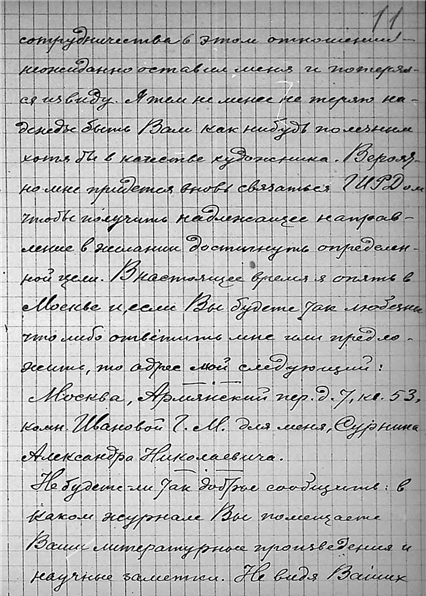 11
сотрудничества в этом отношении –
неожиданно оставил меня и потерял-
ся из виду. Я тем не менее не теряю на-
дежды быть Вам как нибудь полезным
хотя бы в качестве художника. Вероят-
но мне придется вновь связаться ГИРДом
чтобы получить надлежащее направ-
ление в желании достигнуть определен-
ной цели. В настоящее время я опять в
Москве и, если Вы будете так любезны
что либо ответить мне или предло-
жить, то адрес мой следующий:
Москва, Армянский пер. д. 7, кв. 53,
комн. Ивановой Г. М. для меня,
Александра Николаевича.
Не будете-ли так добры сообщить: в
каком журнале Вы помещаете
Ваши литературные произведения и
научные заметки. Не видя Ваших